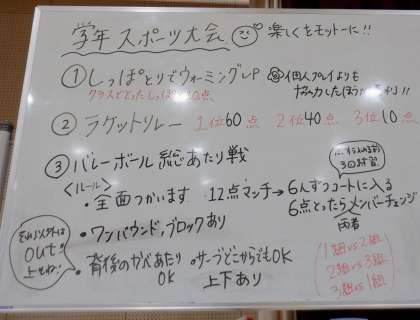 学年スポーツ大会 楽しくをモットーに!!
①しっぽとりでウォーミングUP 個人プレイよりも
クラスでとったしっぽ 点 協力したほうが
②ラケットリレー 1位60点 2位40点 3位10点
③バレーボール 総あたり戦
<ルール>
・全面つかいます 12点マッチ→6人ずつコートに入る
3回練習
6点とったらメンバーチェンジ
両者
・ワンバウンド,ブロックあり
・背後のかべあたりOK ・サーブどこからでもOK
上下あり
それ以外は
out。
1組vs2組
2組vs3組
3組vs1組